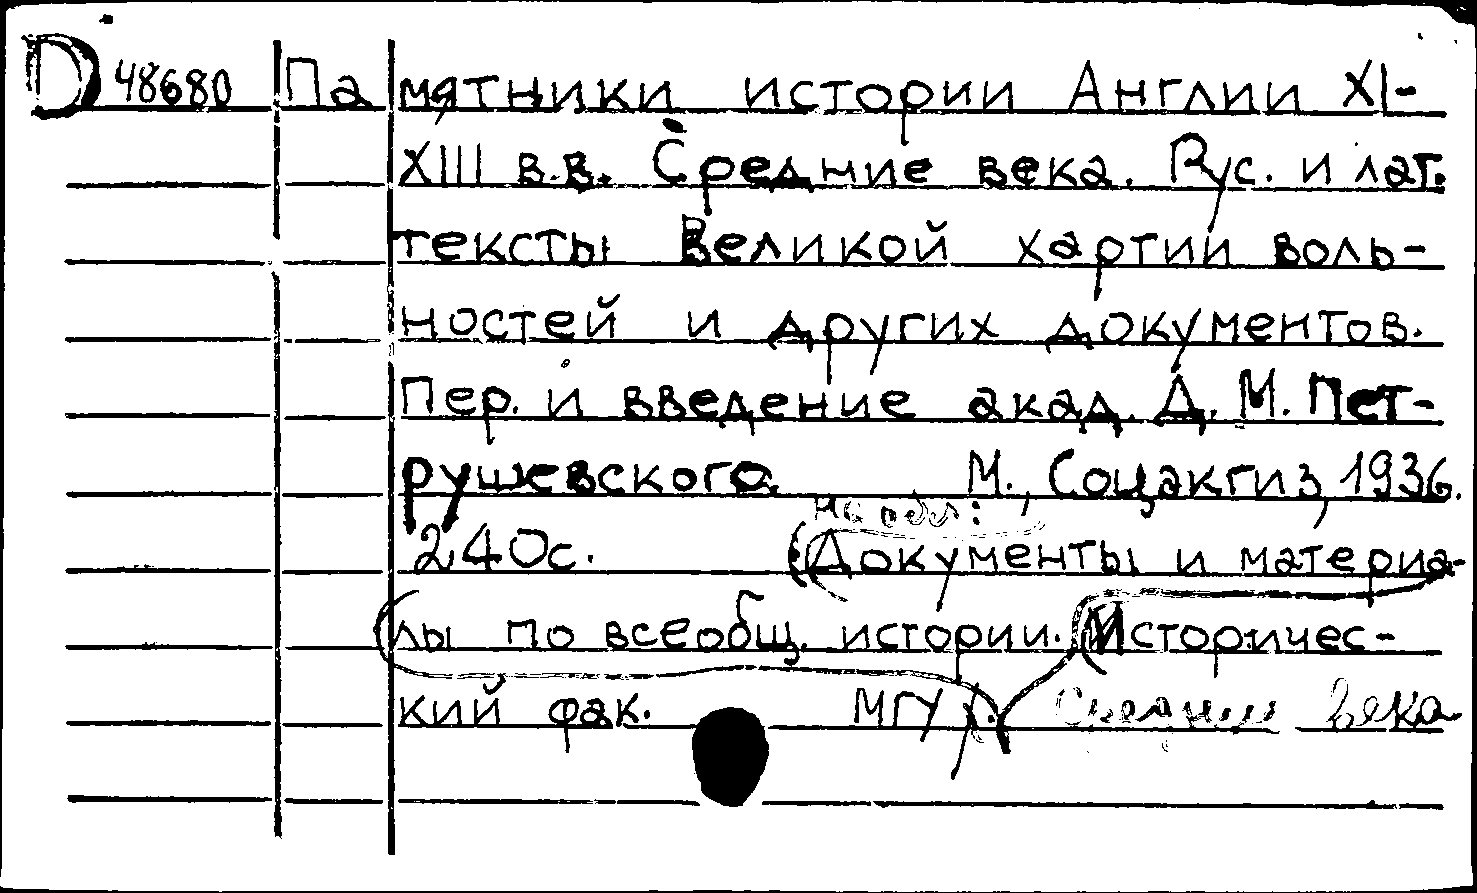 D 48680 Памятники истории Англии XI-
XIII в.в. Средние века. Рус. и лат.
тексты Великой хартии воль-
ностей и других документов.
Пер. и введение акад. Д. М. Пет-
рушевского. М., Соцэкгиз, 1936.
на обл:
240с. (Документы и материа-
лы по всеобщ. истории. (Историчес-
кий фак. МГУ). Средние века